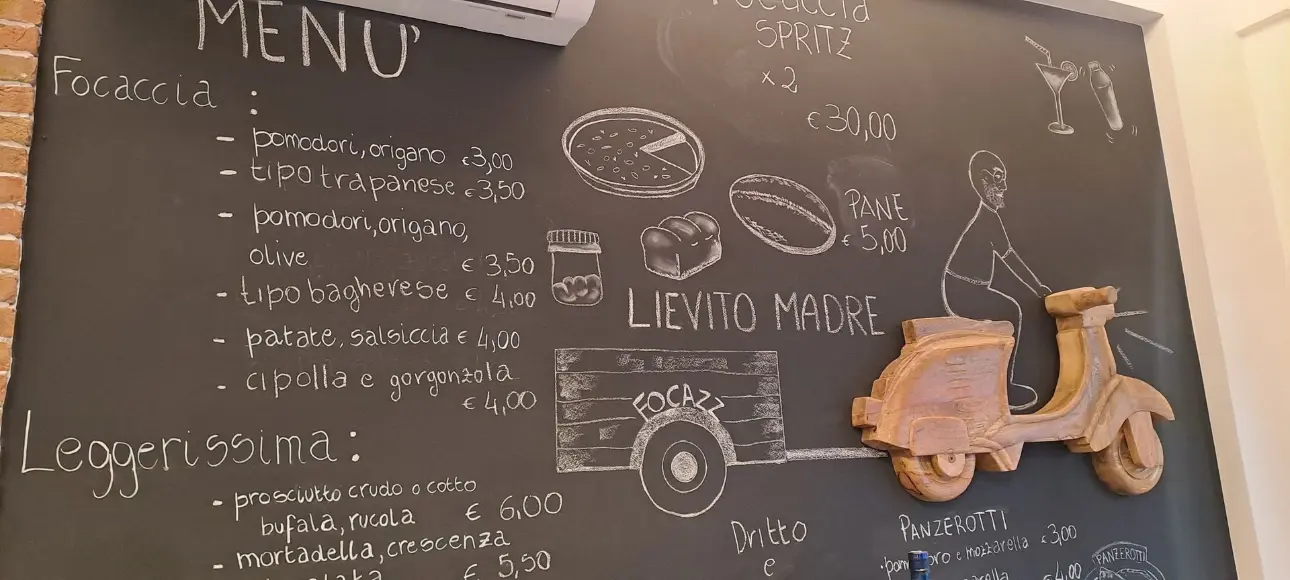 MENU'
Focaccia :
- pomodori, origano €3,00
- tipo trapanese €3,50
- pomodori, origano,
olive € 3,50
- tipo baghevese € 4,00
- patate, salsiccia € 4,00
- cipolla e gorgonzola
€ 4,00
Leggerissima :
- prosciutto crudo o cotto
bufala, rucola € 6,00
- mortadella, crescenza
€ 5,50
Focaccia
SPRITZ
x 2
€30,00
PANE
€ 5,00
LIEVITO MADRE
FOCAZZ
Dritto
e
PANZEROTTI
mozzarella €3,00
€4,00
PANZEROTTI